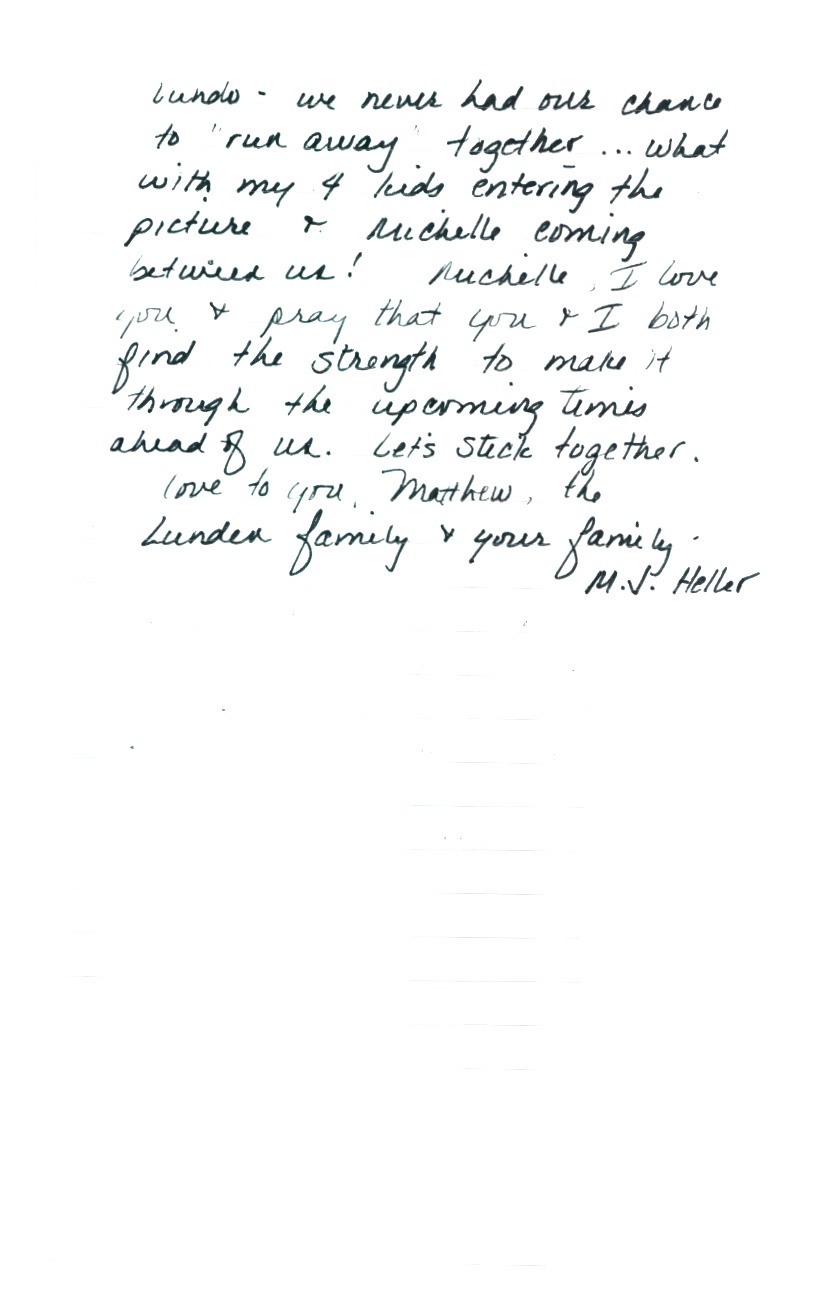 Lundo - we never had our chance
to "run away" together ... what
with my 4 kids entering the
picture & Michelle coming
between us! Michelle, I love
you & pray that you & I both
find the strength to make it
through the upcoming times
ahead of us. Let's stick together.
Love to you, Matthew, the
Lunden family & your family.
M.J. Heller